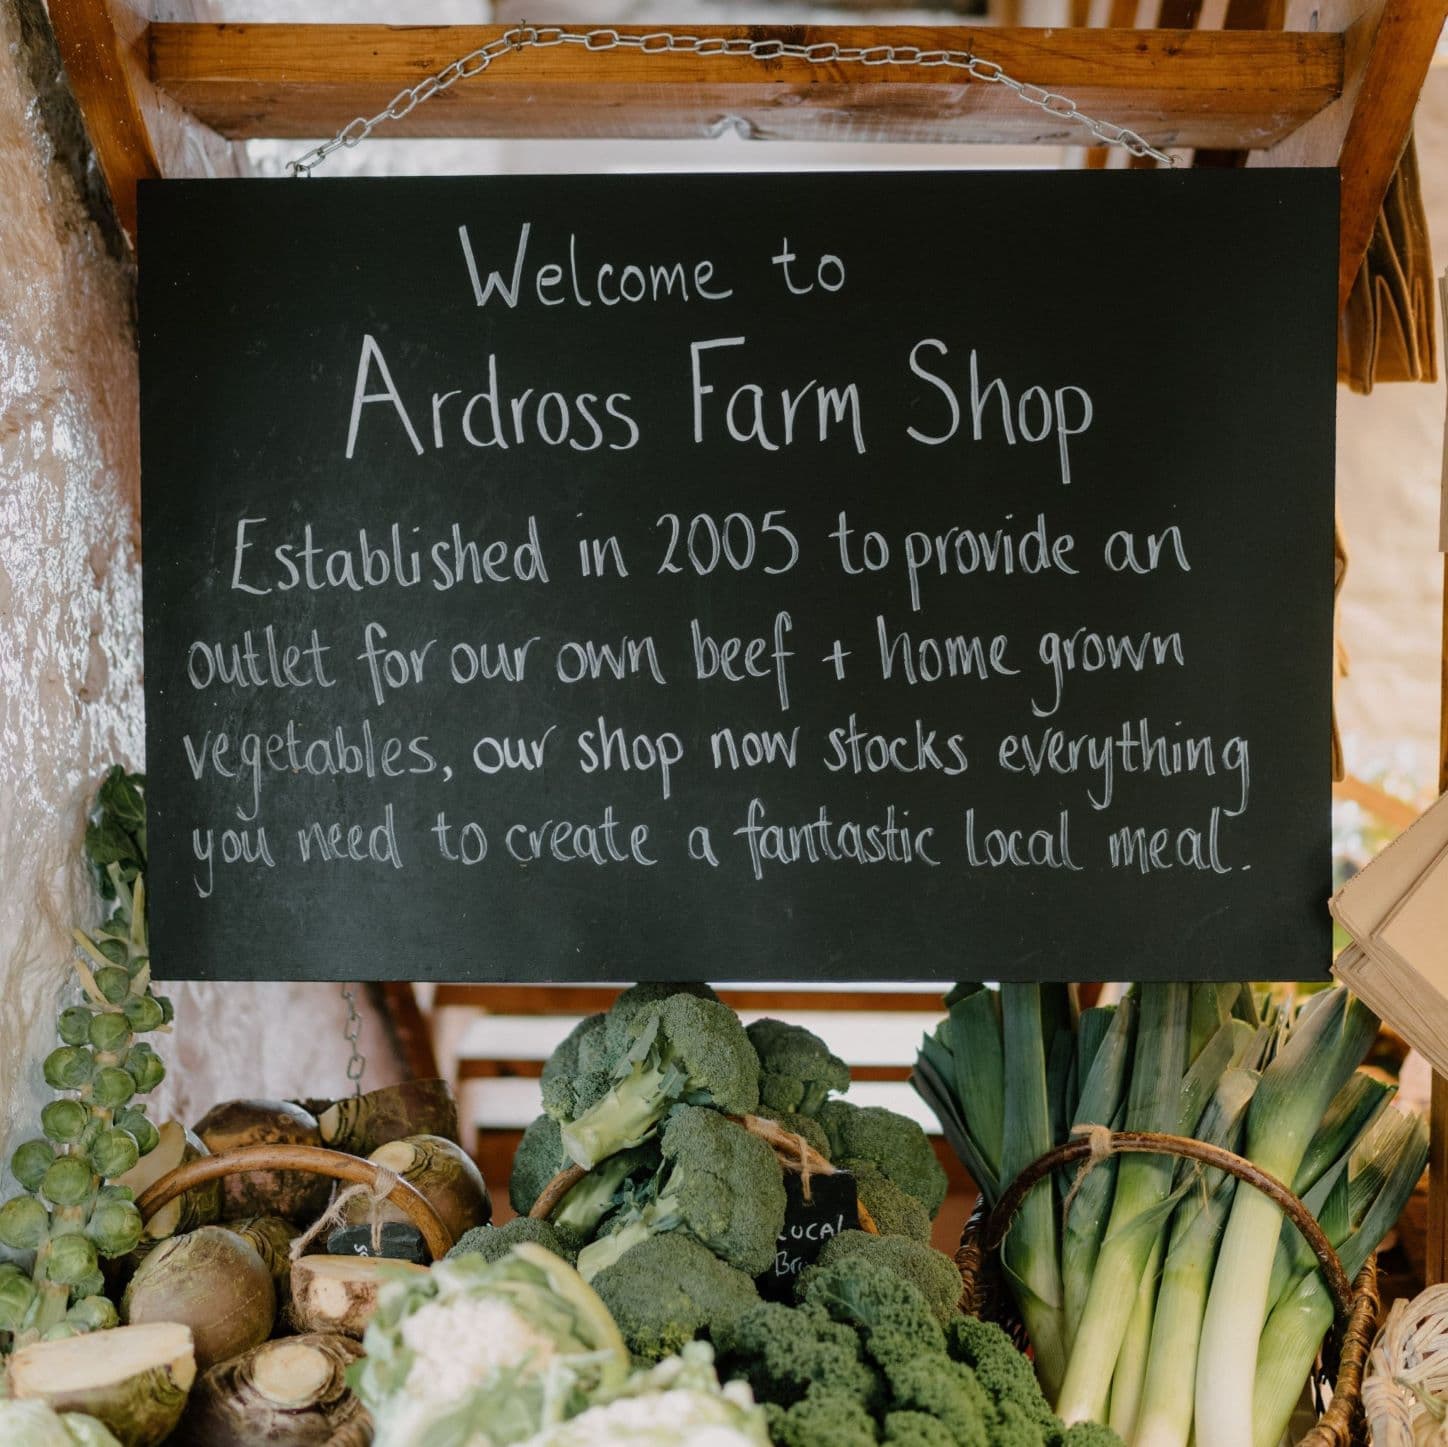 Welcome to
Ardross Farm Shop
Established in 2005 to provide an
outlet for our own beef + home grown
vegetables, our shop now stocks everything
you need to create a fantastic local meal.
LOCAL